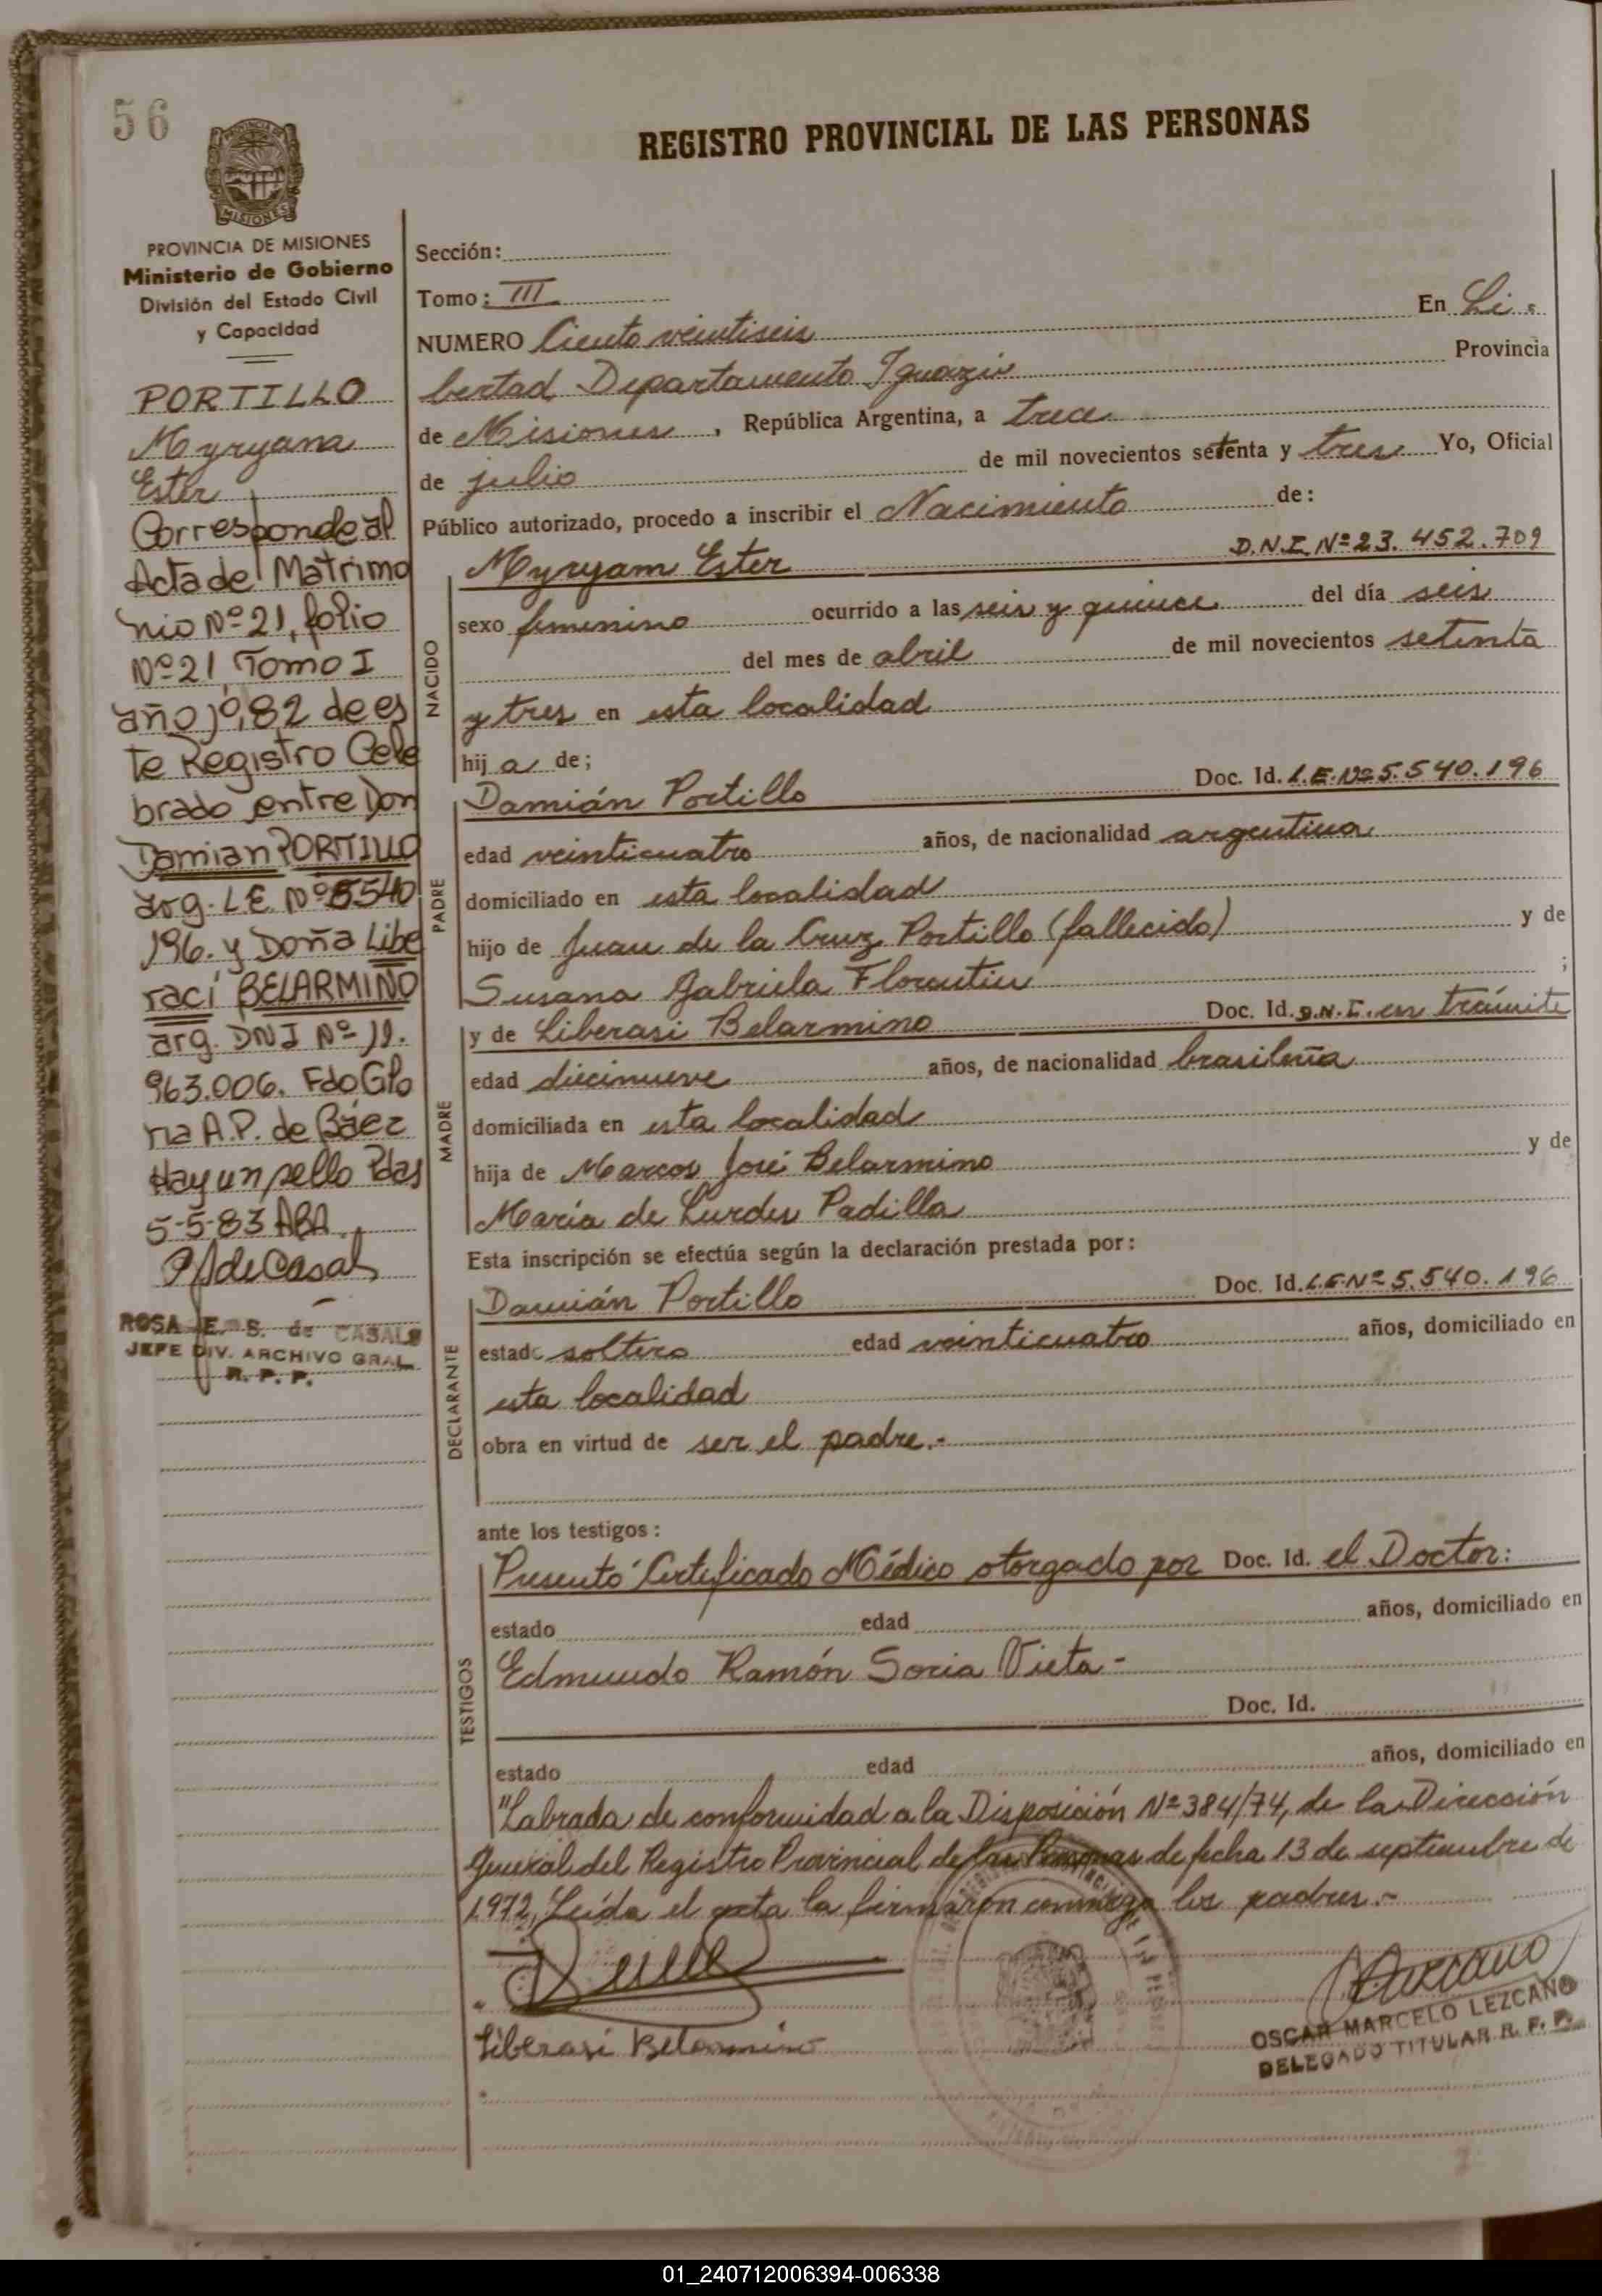 56
REGISTRO PROVINCIAL DE LAS PERSONAS
PROVINCIA DE MISIONES
MISIONES
PROVINCIA DE MISIONES
Ministerio de Gobierno
División del Estado Civil
y Capacidad
PORTILLO
Myryana
Ester
Corresponde al
Acta de Matrimo
nio Nº 21, folio
Nº 21, Tomo I
año 1982 de es
te Registro Cele
brado entre Don
Damian PORTILLO
arg. L E Nº 5540
196. y Doña Libe
raci BELARMINO
arg. DNI Nº 11.
963.006. Fdo Glo
ria A.P. de Báez
Hay un sello Pdas
5-5-83 ABA.
de Casals
ROSA E. S. de CASALS
JEFE DIV. ARCHIVO GRAL.
R. P. P.
Sección:
Tomo: III
NUMERO Ciento veintiseis En Li-
bertad Departamento Iguazú Provincia
de Misiones, República Argentina, a trece
de julio de mil novecientos setenta y tres Yo, Oficial
Público autorizado, procedo a inscribir el Nacimiento de:
NACIDO
Myryam Ester D.N.I. Nº 23.452.709
sexo femenino ocurrido a las seis y quince del día seis
del mes de abril de mil novecientos setenta
y tres en esta localidad
hija de;
PADRE
Damián Portillo Doc. Id. L.E. Nº 5.540.196
edad veinticuatro años, de nacionalidad argentina
domiciliado en esta localidad
hijo de Juan de la Cruz Portillo (fallecido) y de
Susana Gabriela Florentin ;
MADRE
y de Liberasi Belarmino Doc. Id. D.N.I. en trámite
edad diecinueve años, de nacionalidad brasileña
domiciliada en esta localidad
hija de Marcos José Belarmino y de
María de Lurdes Padilla
Esta inscripción se efectúa según la declaración prestada por:
DECLARANTE
Damián Portillo Doc. Id. L.E Nº 5.540.196
estado soltero edad veinticuatro años, domiciliado en
esta localidad
obra en virtud de ser el padre.-
ante los testigos:
TESTIGOS
Presentó Certificado Médico otorgado por Doc. Id. el Doctor:
estado edad años, domiciliado en
Edmundo Ramón Soria Vieta-
Doc. Id.
estado edad años, domiciliado en
"Labrada de conformidad a la Disposición Nº 384/74, de la Dirección
General del Registro Provincial de las Personas de fecha 13 de septiembre de
1972, Leída el acta la firmaron conmigo los padres.-
Liberasi Belarmino
Lezcano
OSCAR MARCELO LEZCANO
DELEGADO TITULAR R. P. P.
01_240712006394-006338